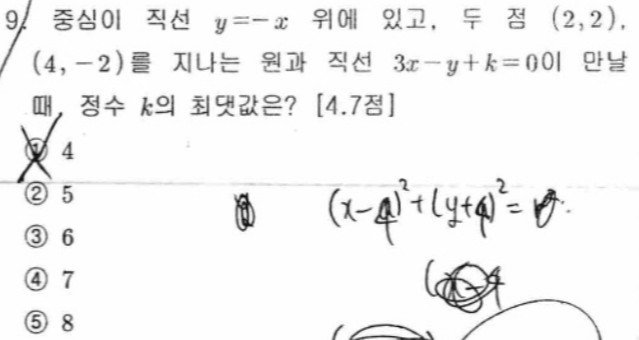 9. 중심이 직선 y=-x 위에 있고, 두 점 (2,2),
(4,-2)를 지나는 원과 직선 3x-y+k=0이 만날
때, 정수 k의 최댓값은? [4.7점]
① 4
② 5
③ 6
④ 7
⑤ 8
(x-a)²+(y+a)²=